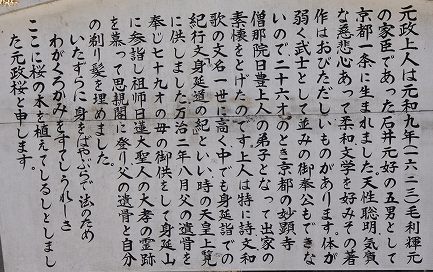 元政上人は元和九年(一六二三)毛利輝元
の家臣であった石井元好の五男として
京都一条に生まれました。天性聡明、気質
な慈悲心あって柔和、文学を好みその著
作はおびただしいものがあります。体が
弱く武士として並みの御奉公もできな
いので二十六才のとき京都の妙顕寺
僧那院日豊上人の弟子となって出家の
素懐をとげたのです。上人は特に詩文和
歌の文名一世に高く中でも身延詣での
紀行文身延道の紀といい時の天皇上覧
に供しました。万治二年八月父の遺骨を
奉じ七十九才の母の御供をして身延山
に参詣し祖師日蓮大聖人の大孝の霊跡
を慕って思親閣に登り父の遺骨と自分
の剃り髪を埋めました。
いたずらに身をばやぶらで法のため
わがくろかみをすてしうれしさ
ここに桜の木を植えてしるしとしまし
た。元政桜と申します。